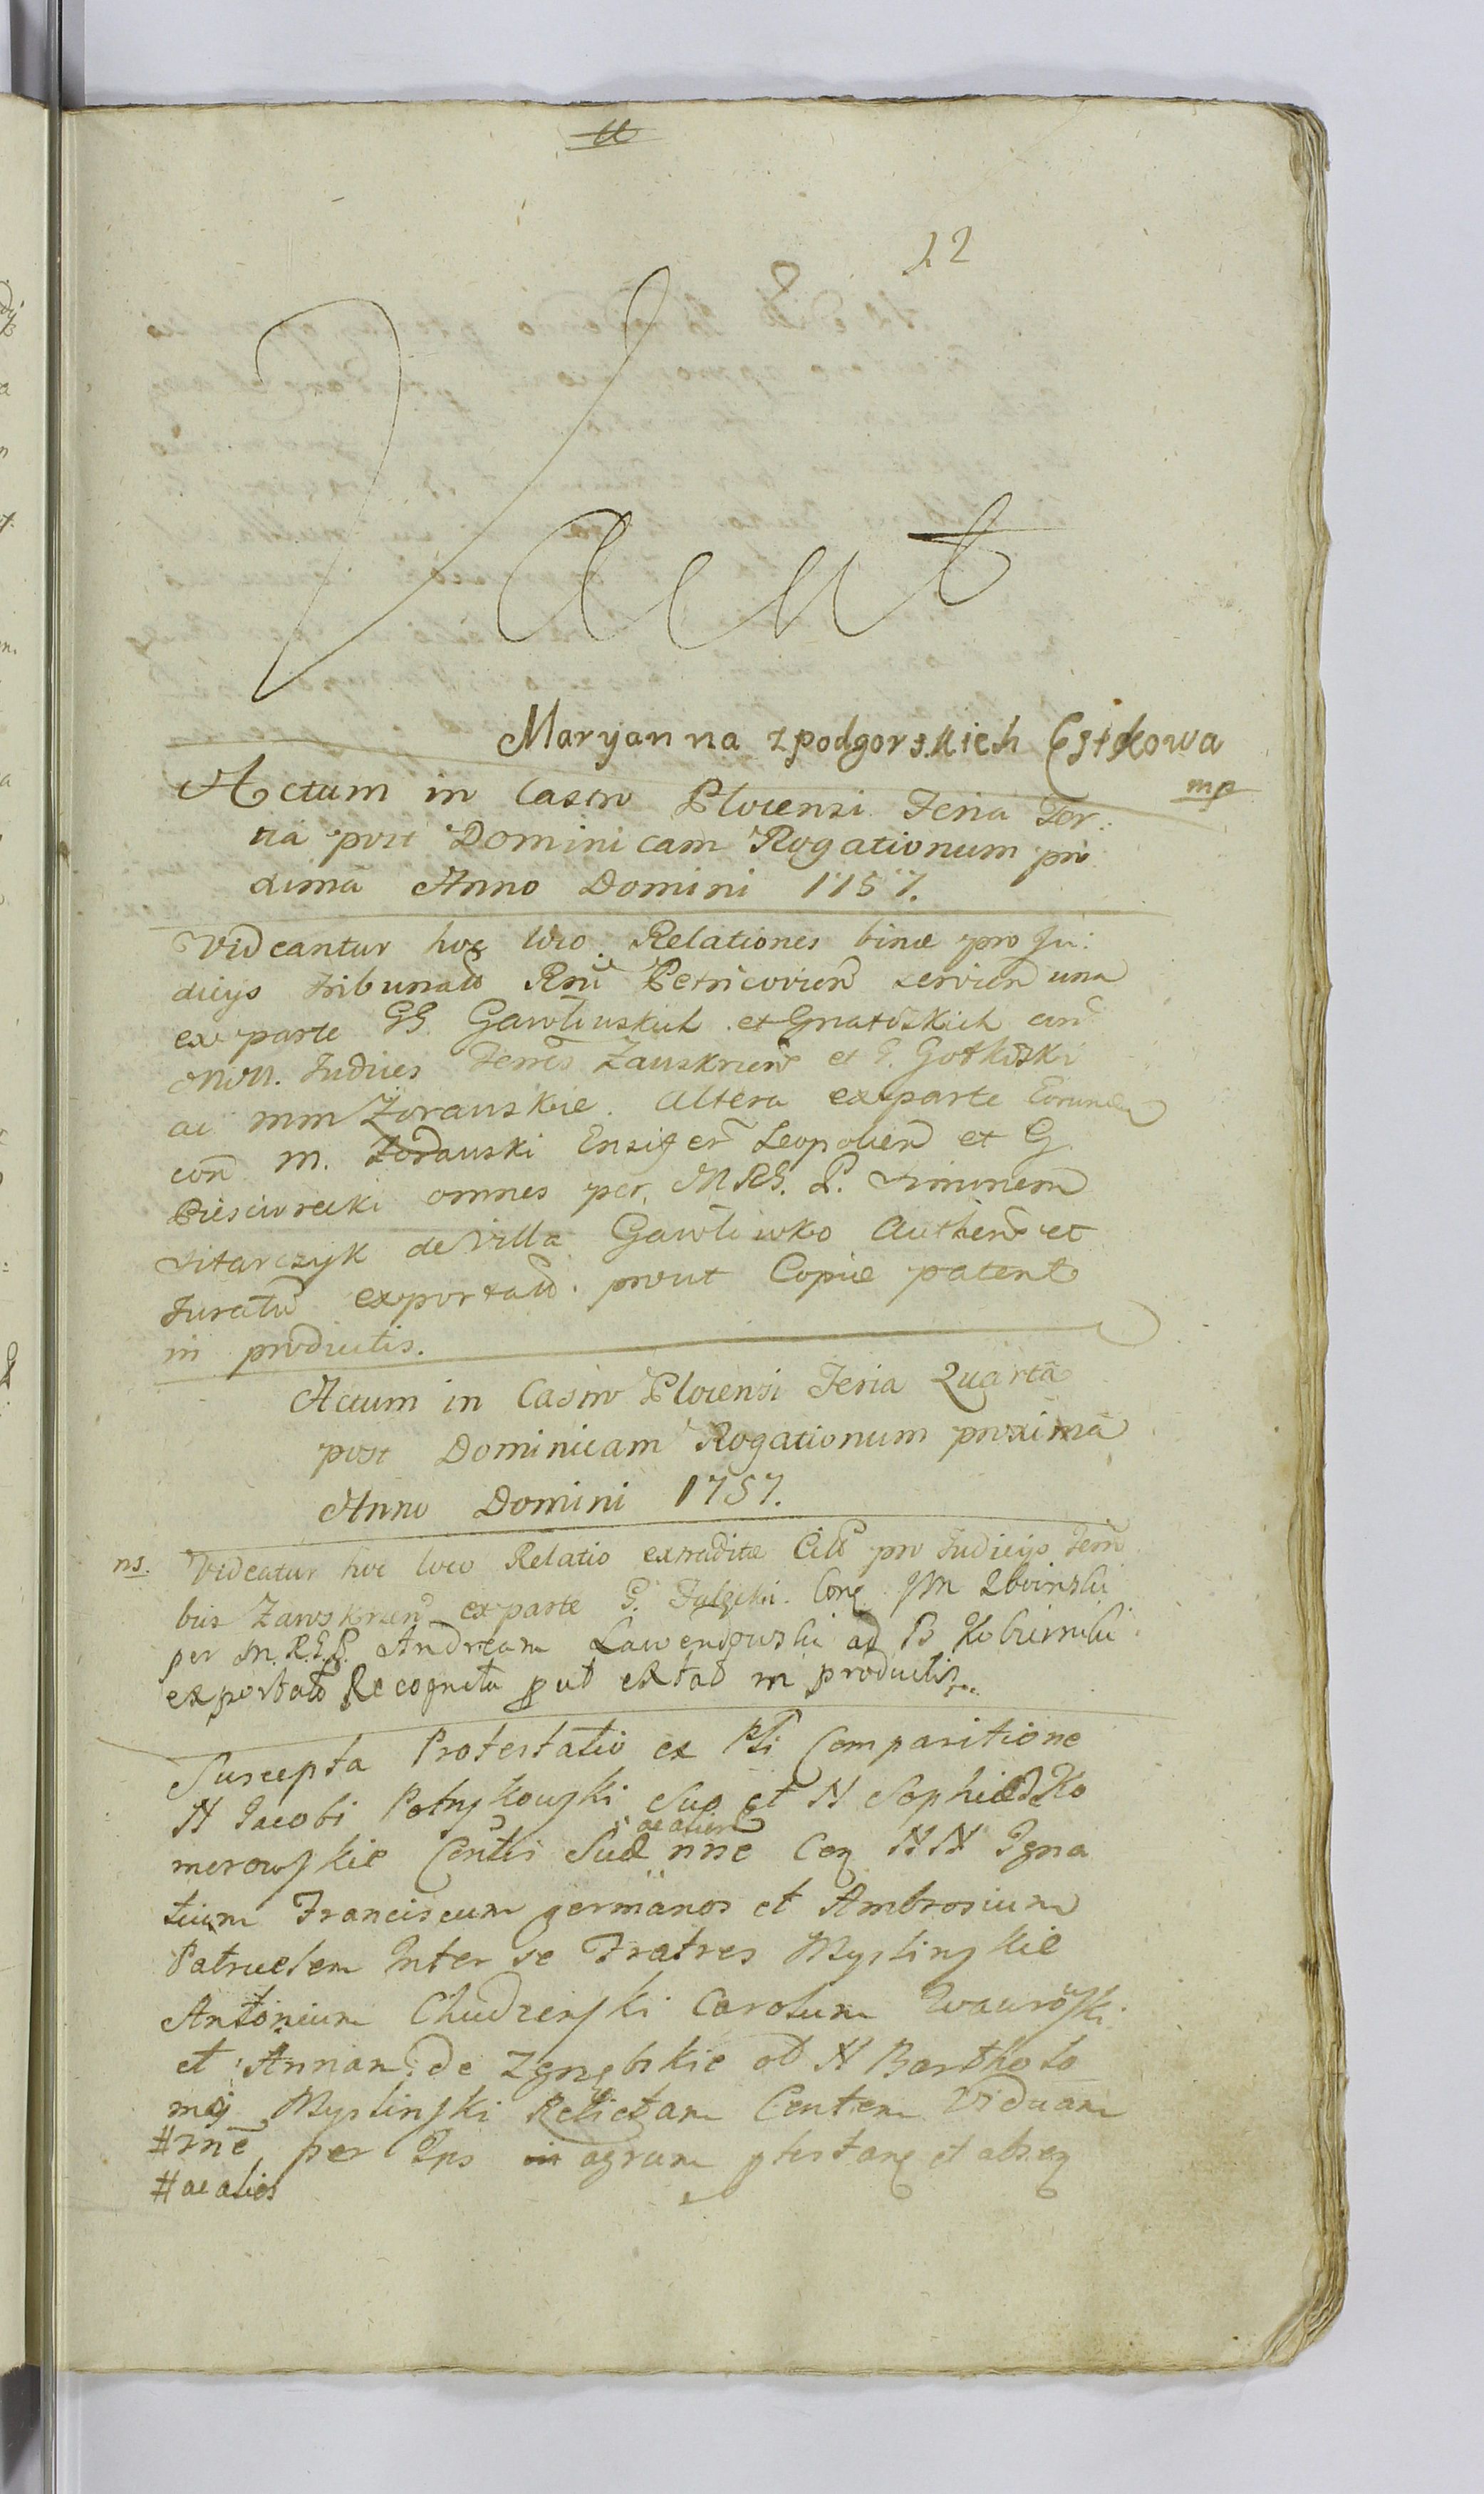 22
Vacat
Maryanna z podgorskich Estkowa
mp
Actum in Castro Plocensi Feria Ter:
tia post Dominicam Rogationum pro
xima Anno Domini 1757.
Videantur hoc loco Relationes binæ pro Ju:
dicijs tribunalῦ Petricovien̄ servien̄ una
ex parte GG. Gawłiuskich et
Judices Terrēs Zauskrien̄ et G.
ac mm Zorauskie. altera ex parte Eorunde͂
con͂ M. Zorauski Ensiger͂ Leopolien͂ et G
omnes per. MRG. P.
sitarczyk de villa Gawłiwko Authen͂ et
Juratū exportatῦ. prout Copiæ patent
in productis.
Actum in Castro Plocensi Feria Quarta
post Dominicam Rogationum proxima
Anno Domini 1757.
ns. Videatur hoc loco Relatio extraditæ Citῦ pro Judicijs Terr͂
bus Zawskrien͂ ex parte G.
per M.R.G.P. Andream Lawendowski ad
exportatῦ Recognita put extat in productis
Suscepta Protestatio ex Pti Comparitione
N Jacobi Potrykowski Suo et N Sophiæ Ko
ac alien͂
merowskie Centis Suæ nn͂e Con NN Igna
tium Franciscum germanos et Ambrosium
Patruelem Inter se Fratres Myslinskie
Antonium Chudzenski Carolum
et Annam de Zgnębskie ol N Bartholo
mej Myslinski Relictam Centem Viduam
# nn͂e per Ips agrum et absq
# ac alios